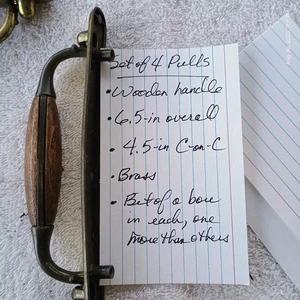 Set of 4 Pulls
• Wooden handle
• 6.5-in overall
• 4.5-in C-on-C
• Brass
• Bit of a bow
in each, one
more than others